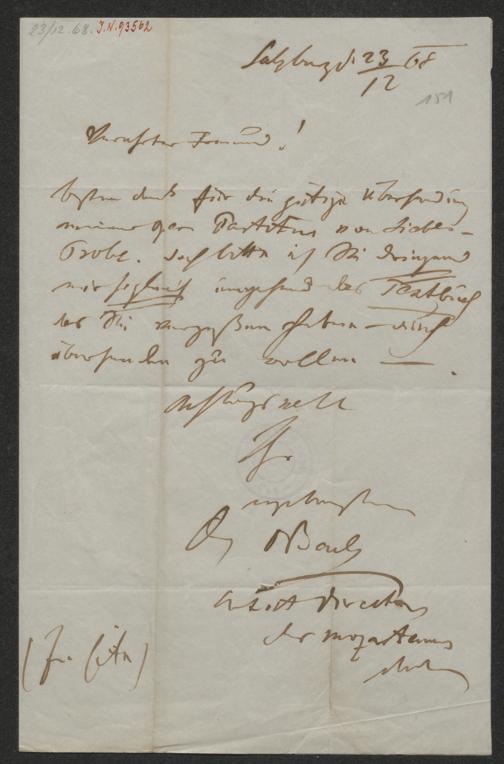 23/12.68. I.N. 93562
Salzburg d. 23/12 68
151
Verehrter Freund!
besten dank für die gütige Übersendung
meiner Partitur von Liebes-
Probe. doch bitte ich Sie dringend
mir sogleich umgehend das Textbuch
das Sie vergessen haben – auch
übersenden zu wollen —.
Achtungsvoll
Ihr
ergebenster
O Bach
Director
des Mozarteums
(In Eile)